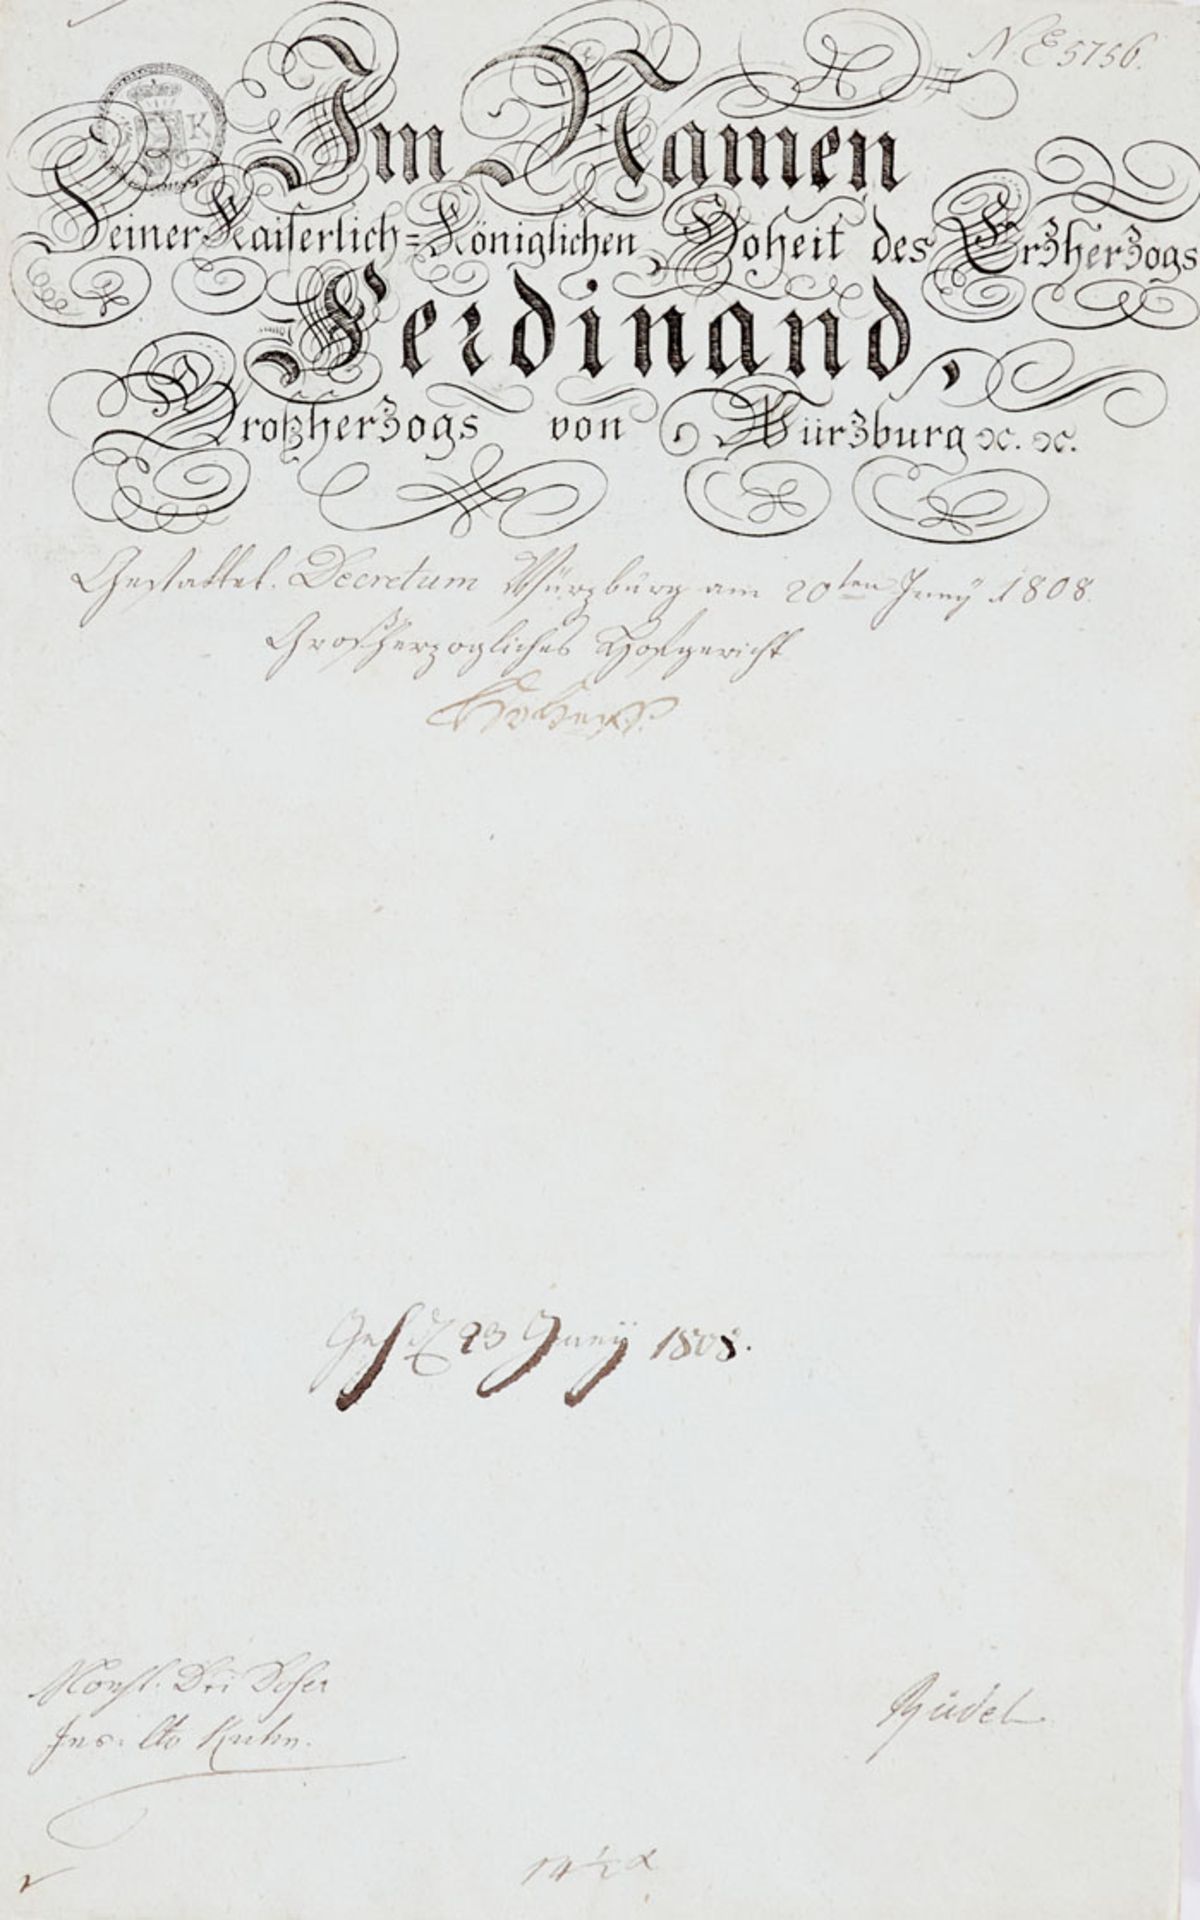 N. E 5756.
K
Im Namen
Seiner Kaiserlich=Königlichen Hoheit des Erzherzogs
Ferdinand,
Großherzogs von Würzburg ꝛc. ꝛc.
Gestattet. Decretum Würzburg am 20ten Juny 1808.
Großherzogliches Hofgericht
23 Juny 1808.
Kuhn.
Rüdel
14½